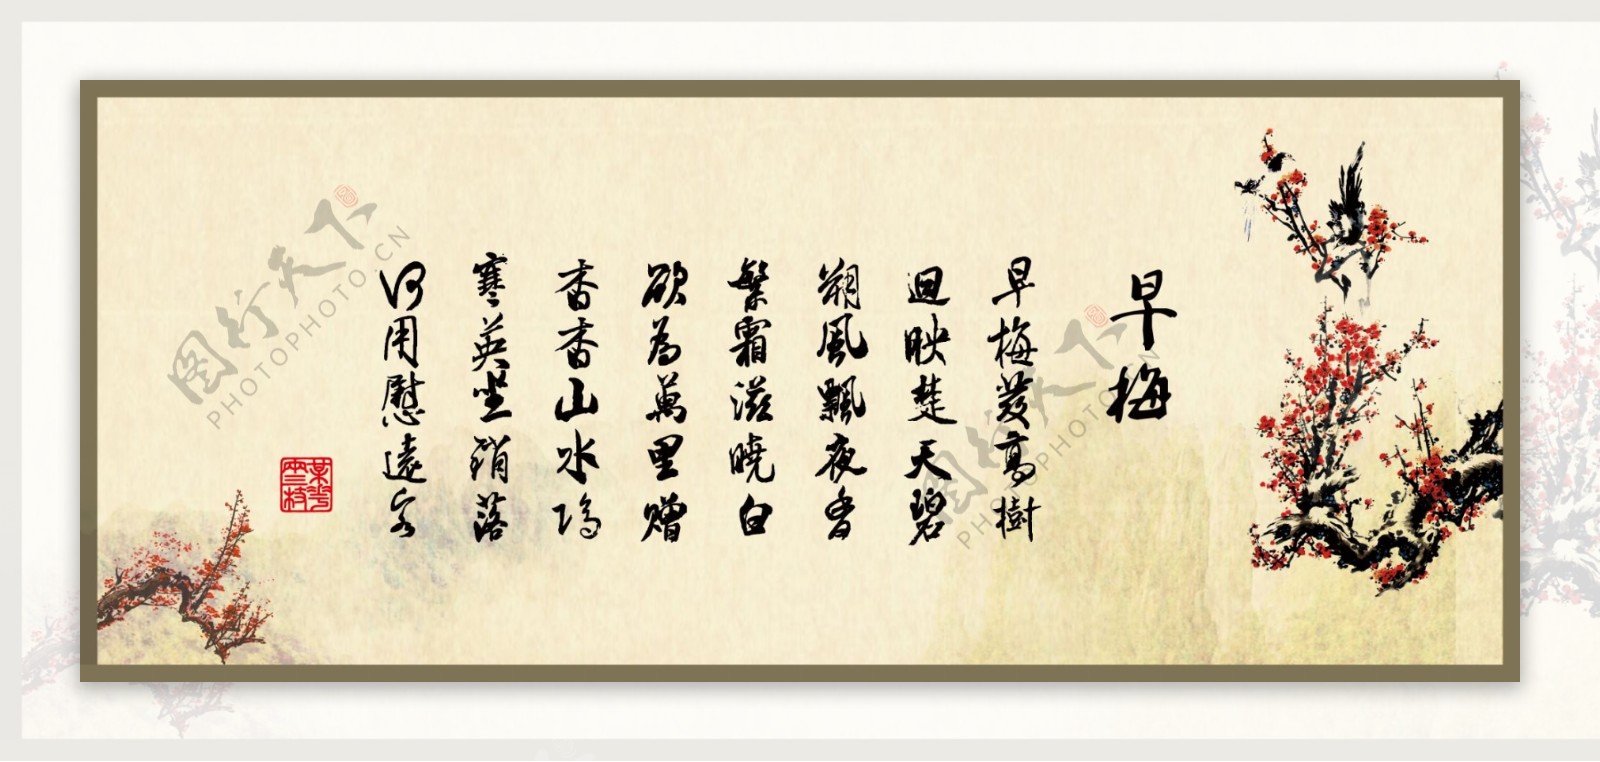 早梅
早梅發高樹
迴映楚天碧
朔風飄夜香
繁霜滋曉白
欲為萬里贈
香香山水隔
寒英坐銷落
何用慰遠客
图行天下
PHOTOPHOTO.CN
图行天下
PHOTOPHOTO.CN